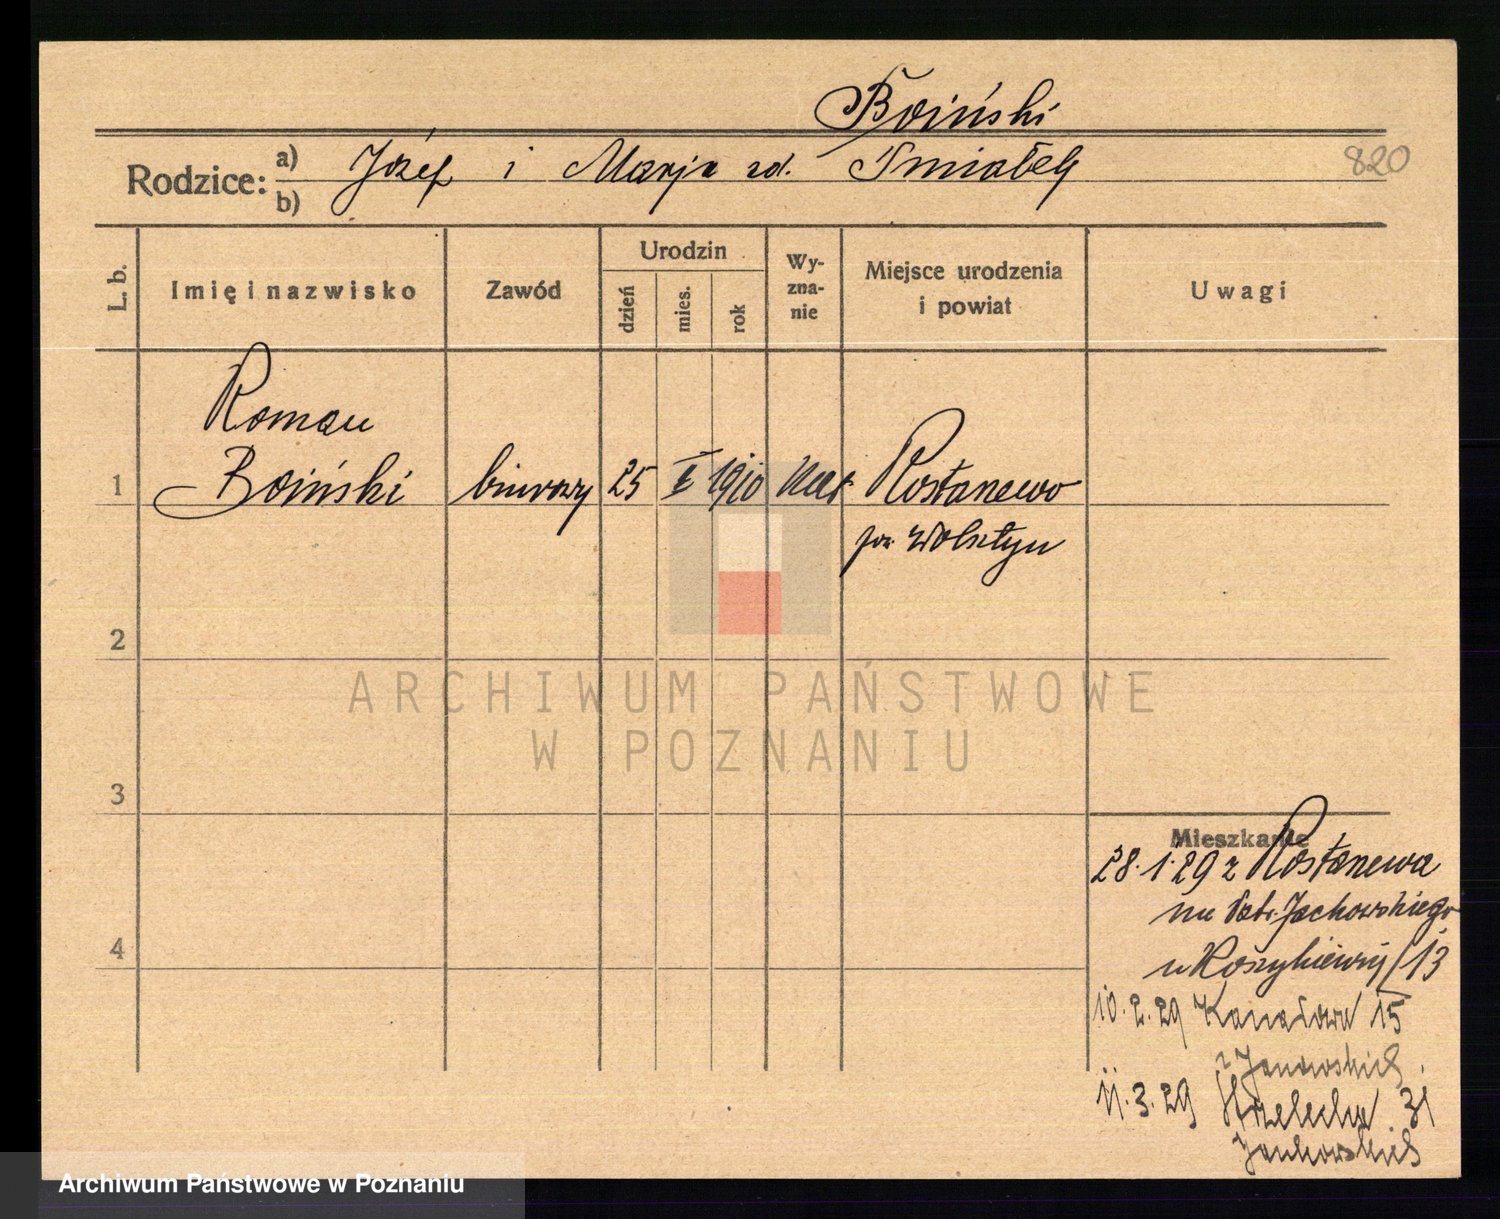 Boiński
Rodzice: a) Józef i Marja zd. Śmiałek
b)
820
L. b.
Imię i nazwisko
Zawód
Urodzin
dzień
mies.
rok
Wy-
zna-
nie
Miejsce urodzenia
i powiat
Uwagi
Roman
1 Boiński biurowy 25 1910 Rostarzewo
pow. Wolsztyn
2
ARCHIWUM PAŃSTWOWE
W POZNANIU
3
Mieszkanie
28.1.29 z Rostarzewa
na Jackowskiego
13
4
10.2.29 Kanałowa 15
11.3.29 Strzelecka 31
Archiwum Państwowe w Poznaniu